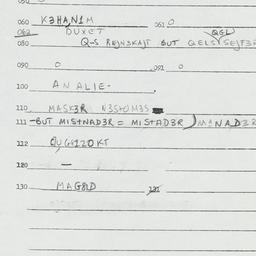 060 K3HAN1M 061 O
062 DUXCT
080 Q-S REJN3KAJT BUT QELS SEJF3R
090 O 091 O
100 ANALIE-
110 MASK3R N3STOM3S
111 -BUT MISTNAD3R = MISTAD3R) MANAD3R
112
120 —
130 MAGRD 131